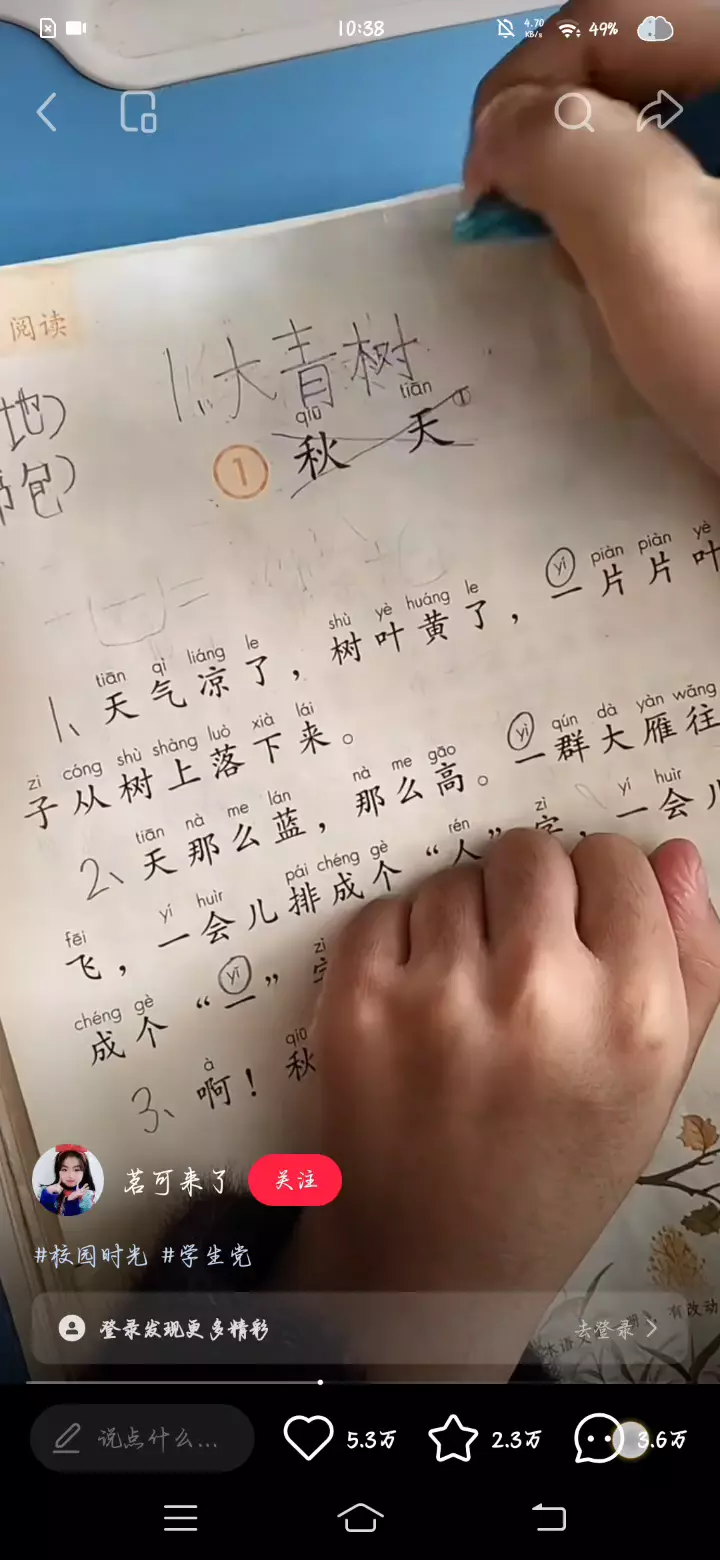 10:38
4.70
KB/s
49%
阅读
1.大青树
地)
包)
qiū tiān
1 秋天①
tiān qì liáng le shù yè huáng le yí piàn piàn yè
1、天气凉了，树叶黄了，一片片叶
zi cóng shù shàng luò xià lái
子从树上落下来。
tiān nà me lán nà me gāo yì qún dà yàn wǎng
2、天那么蓝，那么高。一群大雁往
fēi yí huìr pái chéng gè rén zì yí huìr
飞，一会儿排成个“人”字，一会儿
chéng gè yī zì
成个“一”字
à qiū
3、啊！秋
有改动
茗可来了
关注
#校园时光 #学生党
登录发现更多精彩
去登录
说点什么...
5.3万
2.3万
3.6万